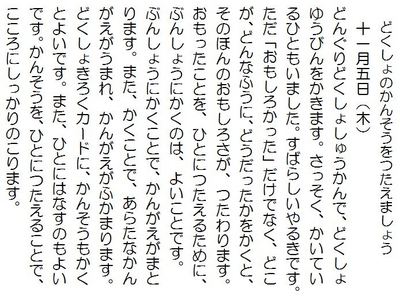 どくしょのかんそうをつたえましょう
十一月五日（木）
どんぐりどくしょしゅうかんで、どくしょ
ゆうびんをかきます。さっそく、かいてい
るひともいました。すばらしいやるきです。
ただ「おもしろかった」だけでなく、どこ
が、どんなふうに、どうだったかをかくと、
そのほんのおもしろさが、つたわります。
おもったことを、ひとにつたえるために、
ぶんしょうにかくのは、よいことです。
ぶんしょうにかくことで、かんがえがまと
ります。また、かくことで、あらたなかん
がえがうまれ、かんがえがふかまります。
どくしょきろくカードに、かんそうもかく
とよいです。また、ひとにはなすのもよい
です。かんそうを、ひとにつたえることで、
こころにしっかりのこります。